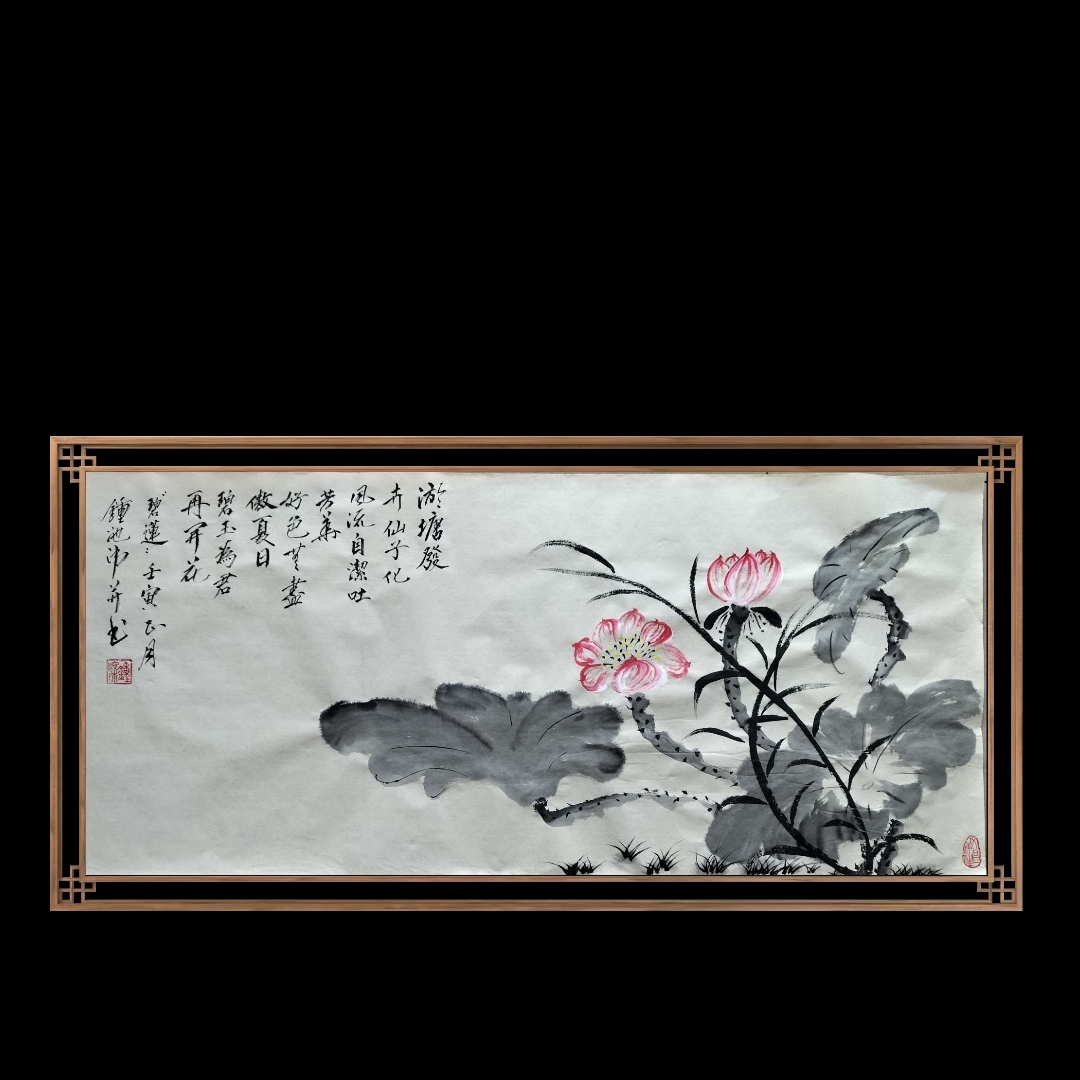 淤塘發
卉仙子化
風流自潔吐
芳華
好色盡
傲夏日
碧玉為君
再開花
碧蓮：壬寅正月
鍾池并书